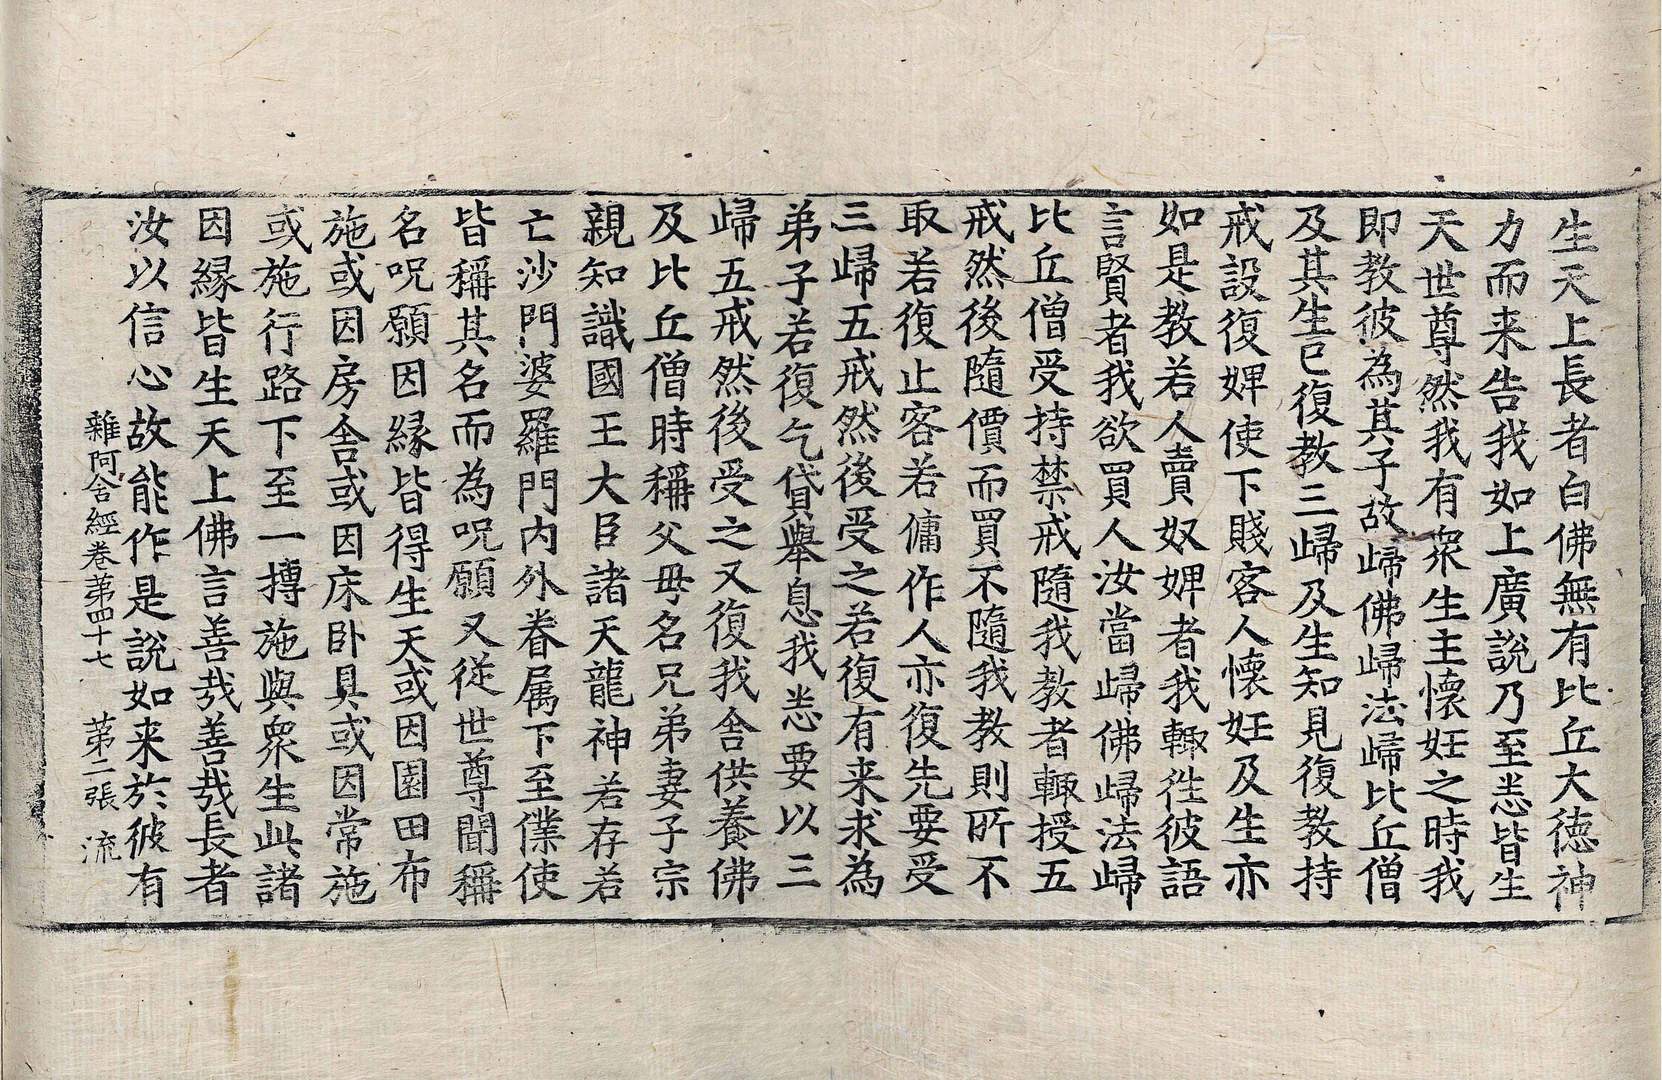 生天上長者白佛無有比丘大德神
力而来告我如上廣說乃至恙皆生
天世尊然我有衆生主懷妊之時我
即教彼為其子故歸佛歸法歸比丘僧
及其生已復教三歸及生知見復教持
戒設復婢使下賤客人懷妊及生亦
如是教若人賣奴婢者我輙徃彼語
言賢者我欲買人汝當歸佛歸法歸
比丘僧受持禁戒隨我教者輙授五
戒然後隨價而買不隨我教則所不
取若復止客若傭作人亦復先要受
三歸五戒然後受之若復有来求為
弟子若復乞貸舉息我恙要以三
歸五戒然後受之又復我舍供養佛
及比丘僧時稱父母名兄弟妻子宗
親知識國王大臣諸天龍神若存若
亡沙門婆羅門內外眷属下至僕使
皆稱其名而為呪願又従世尊聞稱
名呪願因縁皆得生天或因園田布
施或因房舍或因床卧具或因常施
或施行路下至一摶施與衆生此諸
因縁皆生天上佛言善哉善哉長者
汝以信心故能作是說如来於彼有
雜阿含經卷第四十七 苐二張 流